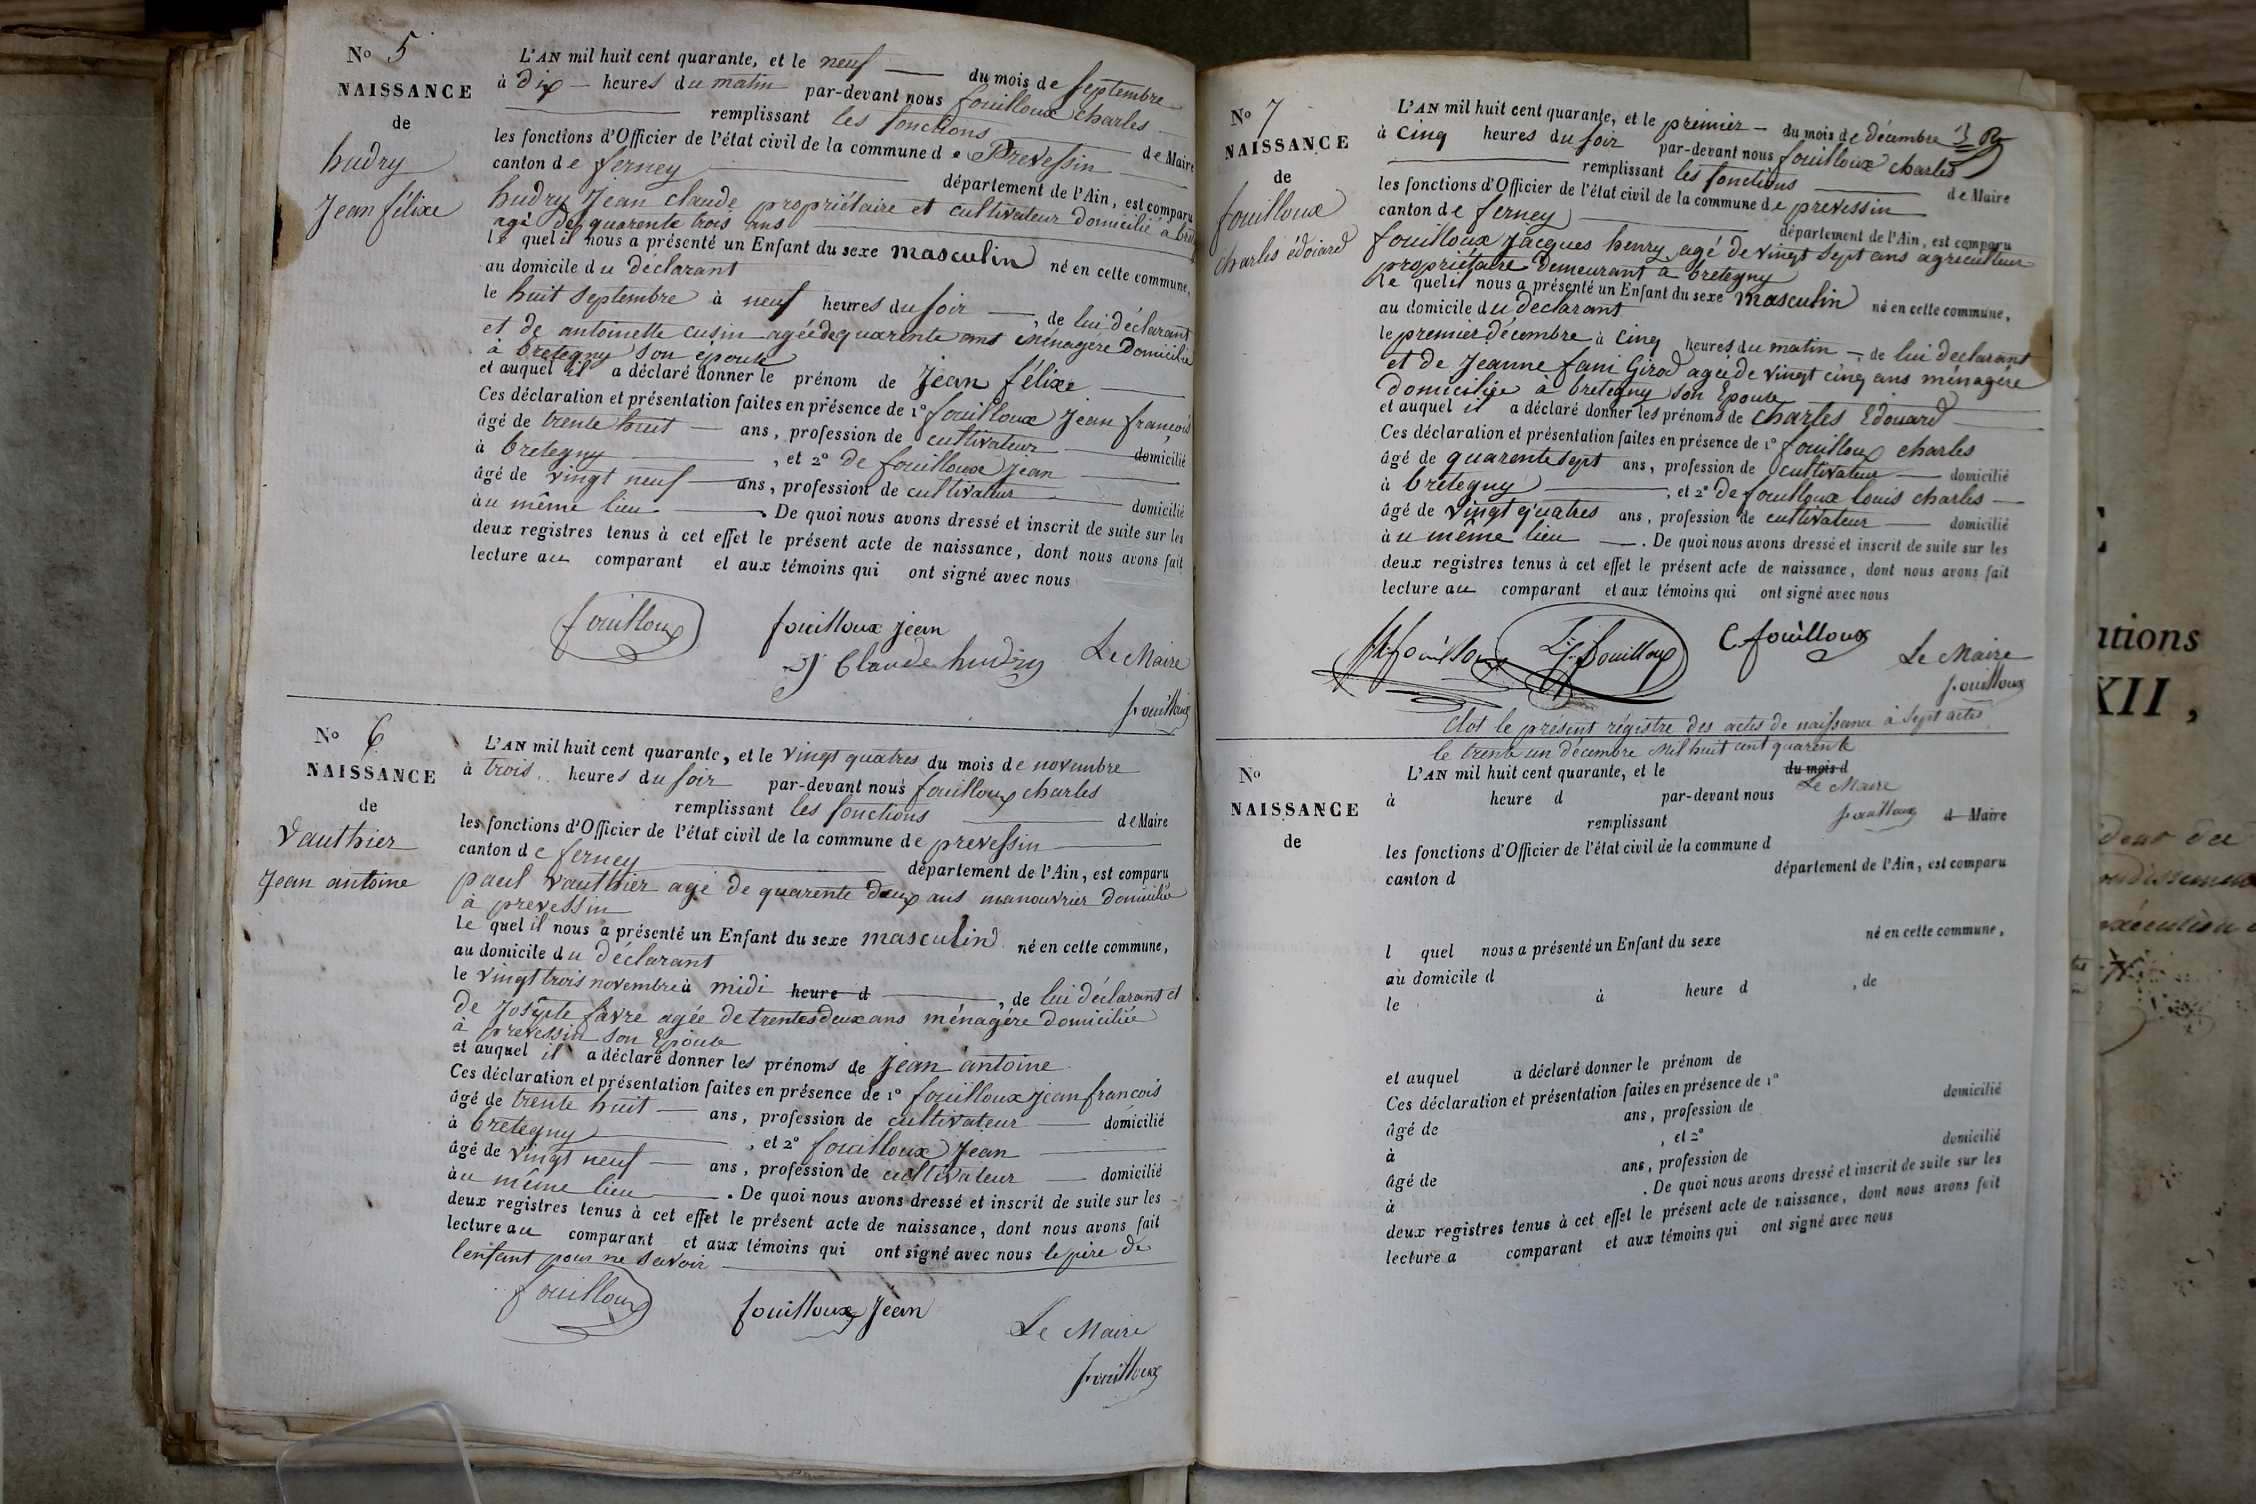 N° 5
NAISSANCE
de
hudry
Jean félixe
L'AN mil huit cent quarante, et le neuf du mois de septembre
à dix heures du matin par-devant nous fouilloux charles
remplissant les fonctions de Maire
les fonctions d'Officier de l'état civil de la commune de Prevessin
canton de ferney département de l'Ain, est comparu
hudry Jean claude propriétaire et cultivateur domicilié à
agé de quarente trois ans
le quel il nous a présenté un Enfant du sexe masculin né en cette commune,
au domicile du déclarant
le huit septembre à neuf heures du soir, de lui déclarant
et de antoinette cusin agée de quarente ans ménagere domicilié
à bretegny son épouse
et auquel il a déclaré donner le prénom de Jean félixe
Ces déclaration et présentation faites en présence de 1° fouilloux Jean françois
âgé de trente huit ans, profession de cultivateur domicilié
à bretegny, et 2° de fouilloux jean
âgé de vingt neuf ans, profession de cultivateur domicilié
àu même lieu. De quoi nous avons dressé et inscrit de suite sur les
deux registres tenus à cet effet le présent acte de naissance, dont nous avons fait
lecture au comparant et aux témoins qui ont signé avec nous
fouilloux
fouilloux jean
J Claude hudry
Le Maire
fouilloux
N° 6
NAISSANCE
de
Vauthier
Jean antoine
L'AN mil huit cent quarante, et le vingt quatres du mois de novembre
à trois heures du soir par-devant nous fouilloux charles
remplissant les fonctions de Maire
les fonctions d'Officier de l'état civil de la commune de prevessin
canton de ferney département de l'Ain, est comparu
paul vauthier agé de quarente deux ans manouvrier domicilié
à prevessin
le quel il nous a présenté un Enfant du sexe masculin né en cette commune,
au domicile du déclarant
le vingt trois novembre à midi heure d, de lui déclarant et
de Josephte favre agée de trentes deux ans ménagére domiciliée
à prevessin son Epouse
et auquel il a déclaré donner les prénoms de jean antoine
Ces déclaration et présentation faites en présence de 1° fouilloux jean francois
âgé de trente huit ans, profession de cultivateur domicilié
à bretegny, et 2° fouilloux Jean
âgé de vingt neuf ans, profession de cultivateur domicilié
àu même lieu. De quoi nous avons dressé et inscrit de suite sur les
deux registres tenus à cet effet le présent acte de naissance, dont nous avons fait
lecture au comparant et aux témoins qui ont signé avec nous le pére de
l'enfant pour ne savoir
fouilloux
fouilloux Jean
Le Maire
fouilloux
N° 7
NAISSANCE
de
fouilloux
charles édoiard
L'AN mil huit cent quarante, et le premier du mois de décembre
à cinq heures du soir par-devant nous fouilloux charles
remplissant les fonctions de Maire
les fonctions d'Officier de l'état civil de la commune de prevessin
canton de ferney département de l'Ain, est comparu
fouilloux Jacques henry agé de vingt sept ans agriculteur
propriétaire demeurant à bretegny
le quel il nous a présenté un Enfant du sexe masculin né en cette commune,
au domicile du déclarant
le premier décembre à cinq heures du matin, de lui declarant
et de Jeanne fani Girod agée de vingt cinq ans ménagére
domiciliée à bretegny son Epouse
et auquel il a déclaré donner les prénoms de charles Edouard
Ces déclaration et présentation faites en présence de 1° fouilloux charles
âgé de quarente sept ans, profession de cultivateur domicilié
à bretegny, et 2° de fouilloux louis charles
âgé de vingt quatres ans, profession de cultivateur domicilié
àu même lieu. De quoi nous avons dressé et inscrit de suite sur les
deux registres tenus à cet effet le présent acte de naissance, dont nous avons fait
lecture au comparant et aux témoins qui ont signé avec nous
fouilloux
fouilloux
C fouilloux
Le Maire
fouilloux
Clos le présent régistre des actes de naissance à sept actes
le trente un décembre mil huit cent quarente
Le Maire
fouilloux
N°
NAISSANCE
de
L'AN mil huit cent quarante, et le du mois d
à heure d par-devant nous
remplissant d Maire
les fonctions d'Officier de l'état civil de la commune d
canton d département de l'Ain, est comparu
l quel nous a présenté un Enfant du sexe né en cette commune,
au domicile d
le à heure d, de
et auquel a déclaré donner le prénom de
Ces déclaration et présentation faites en présence de 1°
âgé de ans, profession de domicilié
à, et 2°
âgé de ans, profession de domicilié
à. De quoi nous avons dressé et inscrit de suite sur les
deux registres tenus à cet effet le présent acte de naissance, dont nous avons fait
lecture a comparant et aux témoins qui ont signé avec nous
XII,